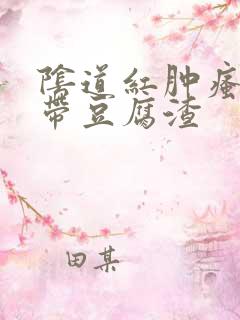 陰道紅肿瘙
帶豆腐渣
田某